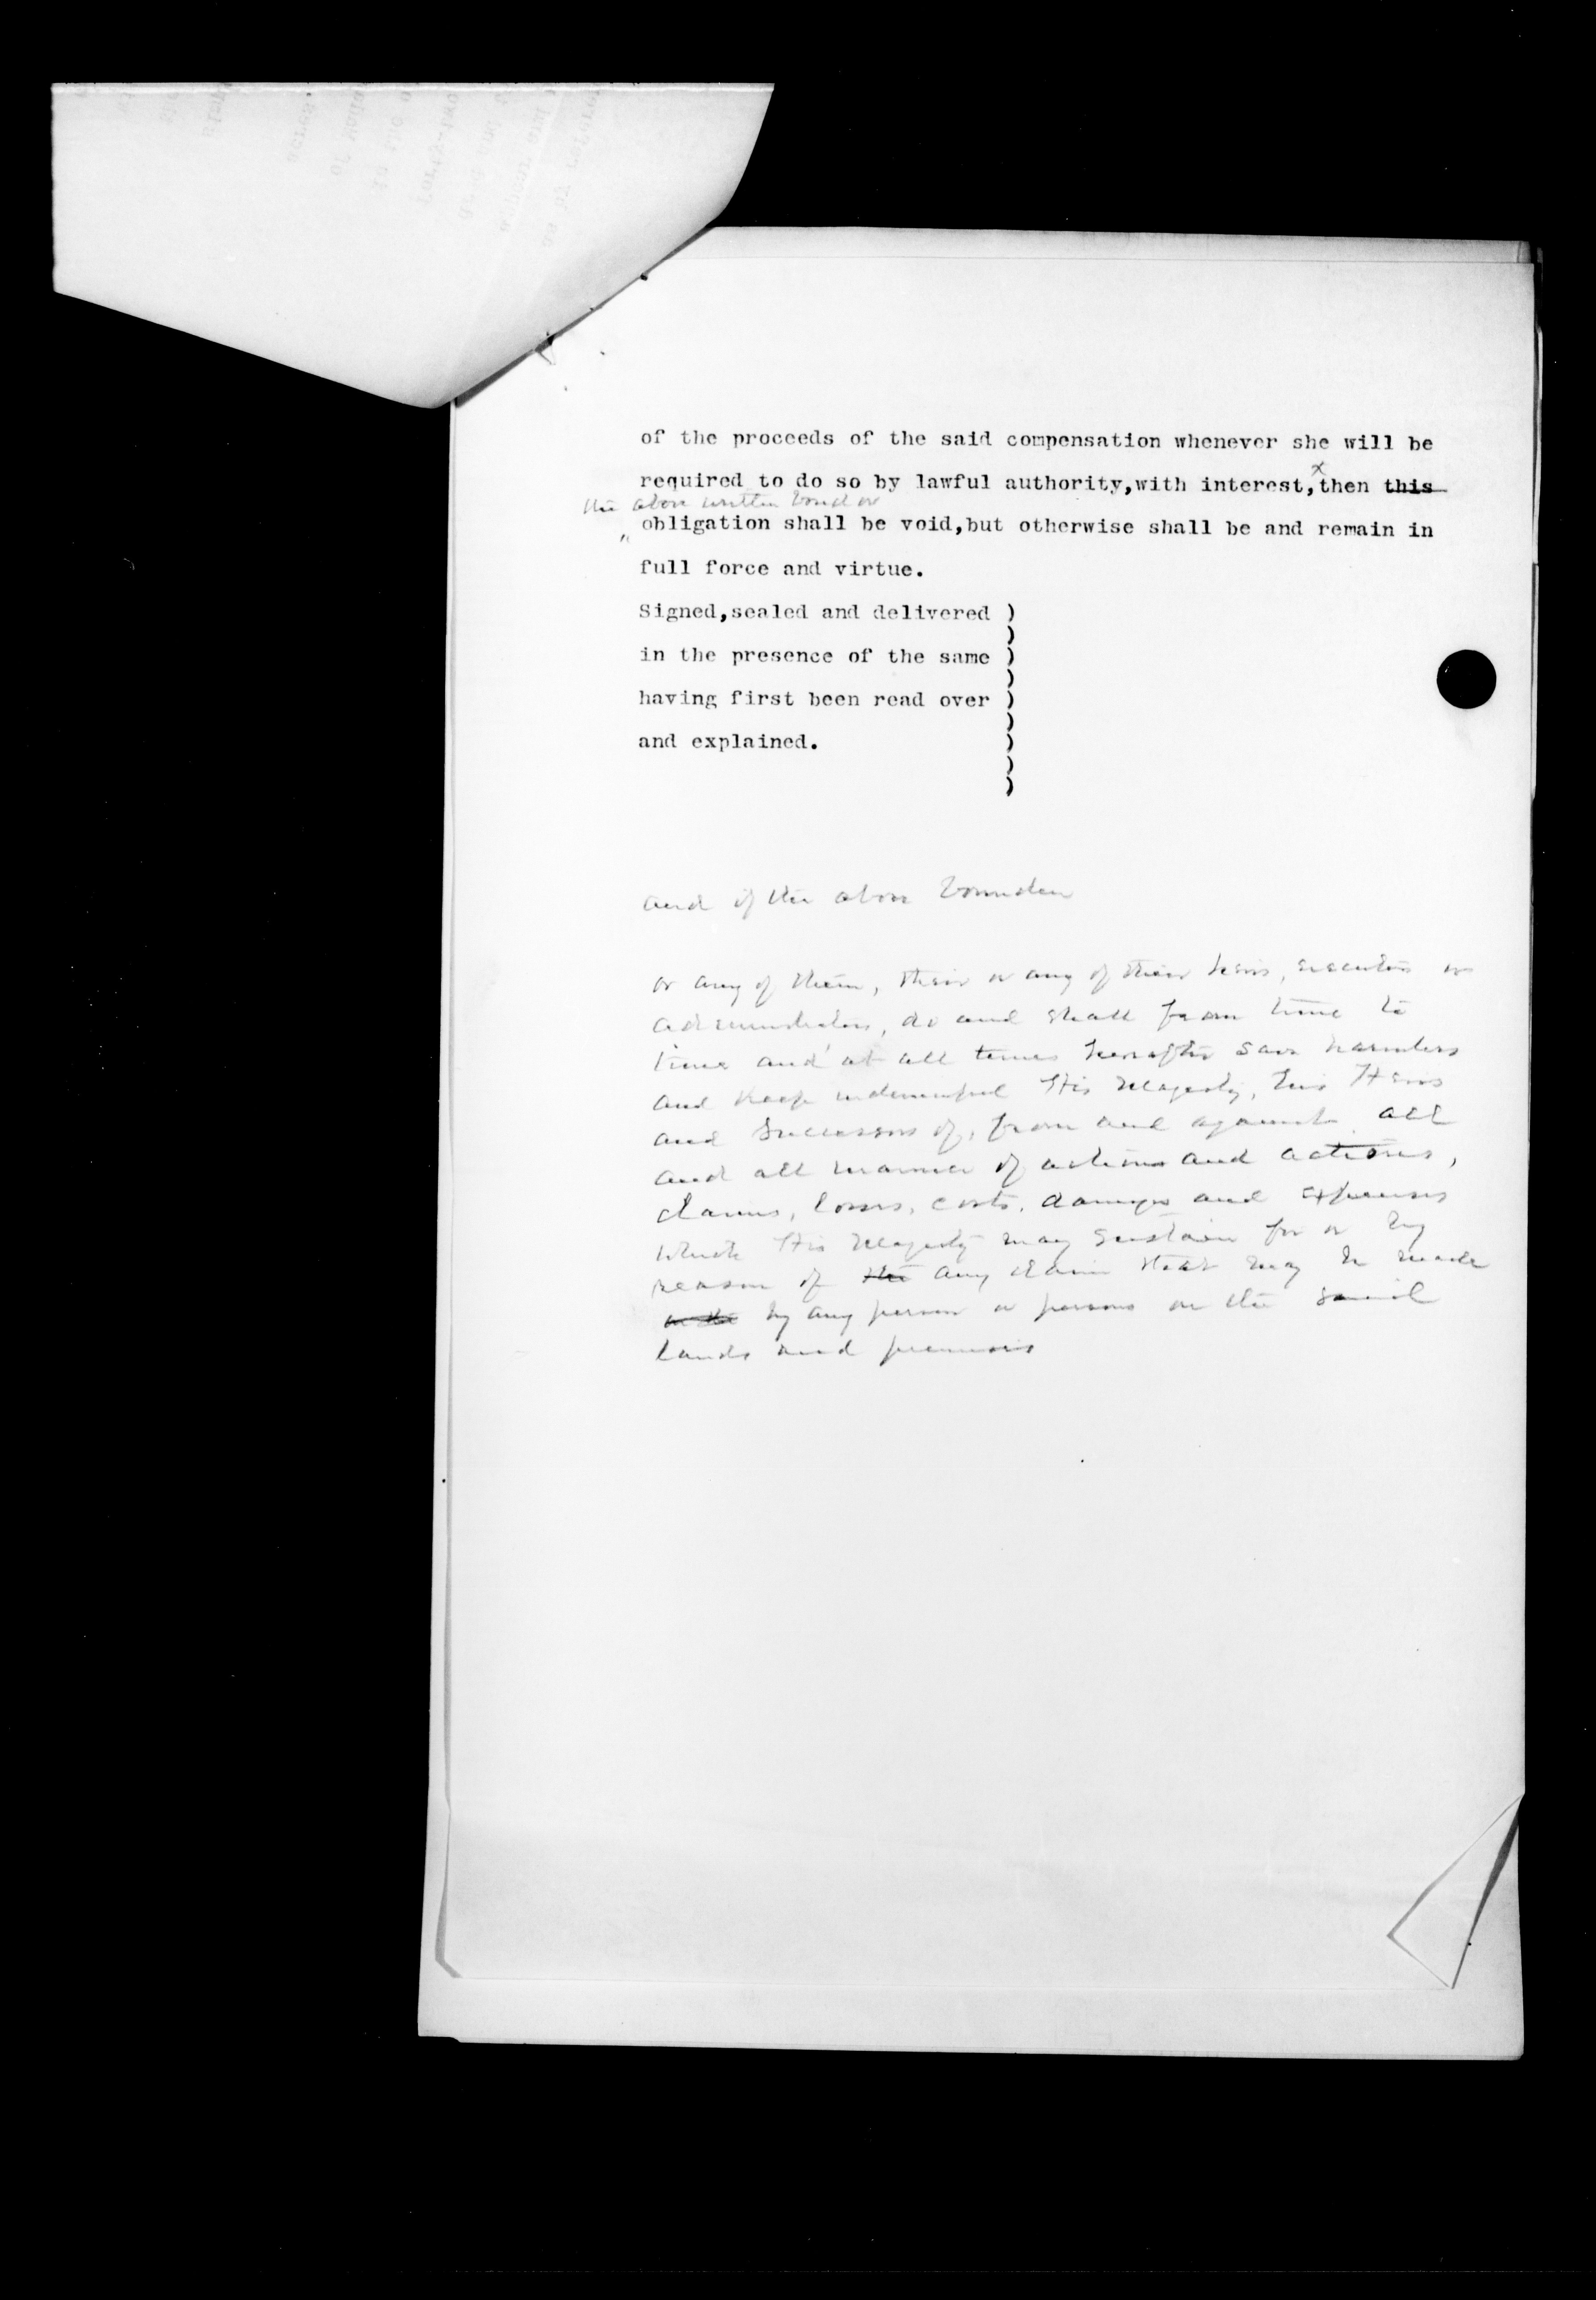 of the proceeds of the said compensation whenever she will be
x
required to do so by lawful authority,with interest,then this
the above written bond or
obligation shall be void,but otherwise shall be and remain in
full force and virtue.
Signed,sealed and delivered )
in the presence of the same )
having first been read over )
and explained. )
and if the above bounden
or any of them, their or any of their heirs, executors or
administrators, do and shall from time to
time and at all times hereafter save harmless
and keep indemnified His Majesty, his Heirs
and Successors of, from and against all
and all manner of actions and actions,
claims, losses, costs, damages and expenses
which His Majesty may sustain for or by
reason of the any claim that may be made
by any person or persons on the said
lands and premises